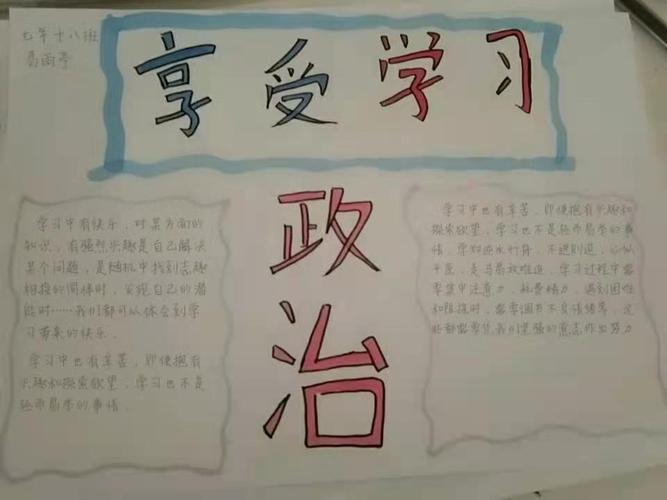 七年十八班
葛雨亭
享受学习
政治
学习中有快乐，对某方面的
知识，有强烈兴趣是自己解决
某个问题，是随机中找到志趣
相投的同伴时，发现自己的潜
能时……我们都可以体会到学
习带来的快乐．
学习中也有辛苦，即便抱有
兴趣和探索欲望，学习也不是
轻而易举的事情．
学习中也有辛苦，即便抱有兴趣和
探索欲望，学习也不是轻而易举的事
情，学如逆水行舟，不进则退，心似
平原，走马易放难追，学习过程中需
要集中注意力，耗费精力，遇到困难
和阻挠时，需要调节不良情绪等，这
些都需要凭我们坚强的意志作出努力